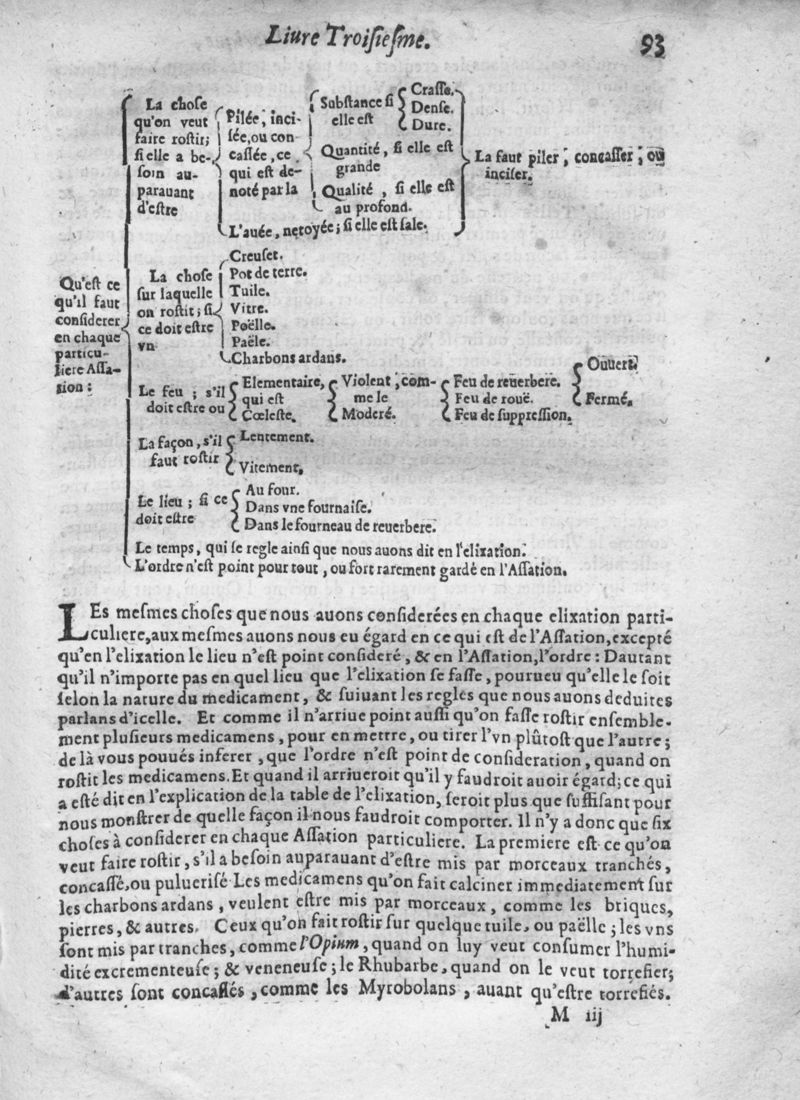 Liure Troisiesme.
93
Qu'est ce
qu'il faut
considerer
en chaque
particu-
liere Assa-
tion :
La chose
qu'on veut
faire rostir;
si elle a be-
soin au-
parauant
d'estre
Pilée, inci-
sée, ou con
cassée, ce
qui est de-
noté par la
Substance si
elle est
Crasse.
Dense.
Dure.
Quantité, si elle est
grande
Qualité , si elle est
au profond.
L'auée, netoyée; si elle est sale.
La faut piler , concasser , ou
inciser.
La chose
sur laquelle
on rostit; si
ce doit estre
vn
Creuset.
Pot de terre.
Tuile.
Vitre.
Poëlle.
Paële.
Charbons ardans.
Le feu ; s'il
doit estre ou
Elementaire,
qui est
Cœleste.
Violent , com-
me le
Moderé.
Feu de reuerbere.
Feu de rouë.
Feu de suppression.
Ouuert.
Fermé.
La façon, s'il
faut rostir
Lentement.
Vitement.
Le lieu ; si ce
doit estre
Au four.
Dans vne fournaise.
Dans le fourneau de reuerbere.
Le temps, qui se regle ainsi que nous auons dit en l'elixation.
L'ordre n'est point pour tout , ou fort rarement gardé en l'Assation.
LEs mesmes choses que nous auons considerées en chaque elixation parti-
culiere, aux mesmes auons nous eu égard en ce qui est de l'Assation, excepté
qu'en l'elixation le lieu n'est point consideré , & en l'Assation, l'ordre : Dautant
qu'il n'importe pas en quel lieu que l'elixation se fasse, pourueu qu'elle le soit
selon la nature du medicament, & suiuant les regles que nous auons deduites
parlans d'icelle. Et comme il n'arriue point aussi qu'on fasse rostir ensemble-
ment plusieurs medicamens , pour en mettre, ou tirer l'vn plûtost que l'autre;
de là vous pouués inferer , que l'ordre n'est point de consideration , quand on
rostit les medicamens. Et quand il arriueroit qu'il y faudroit auoir égard; ce qui
a esté dit en l'explication de la table de l'elixation, seroit plus que suffisant pour
nous monstrer de quelle façon il nous faudroit comporter. Il n'y a donc que six
choses à considerer en chaque Assation particuliere. La premiere est ce qu'on
veut faire rostir , s'il a besoin auparauant d'estre mis par morceaux tranchés,
concassé, ou puluerisé Les medicamens qu'on fait calciner immediatement sur
les charbons ardans , veulent estre mis par morceaux , comme les briques,
pierres, & autres. Ceux qu'on fait rostir sur quelque tuile, ou paëlle ; les vns
sont mis par tranches, comme l'Opium, quand on luy veut consumer l'humi-
dité excrementeuse ; & veneneuse ; le Rhubarbe, quand on le veut torrefier;
d'autres sont concassés , comme les Myrobolans , auant qu'estre torrefiés.
M iij